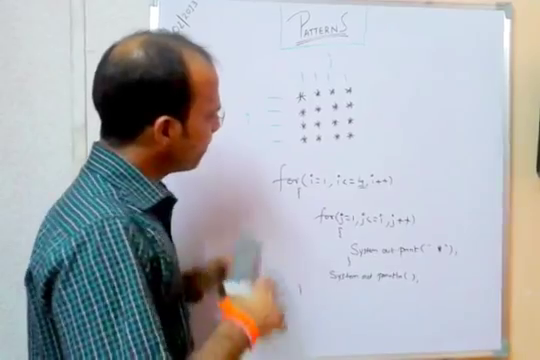 02/2023
PATTERNS
* * * *
* * * *
* * * *
* * * *
for(i=1, i<=4, i++)
{
for(j=1, j<=i, j++)
{
System.out.print(" * "),
}
System.out.println(),
}